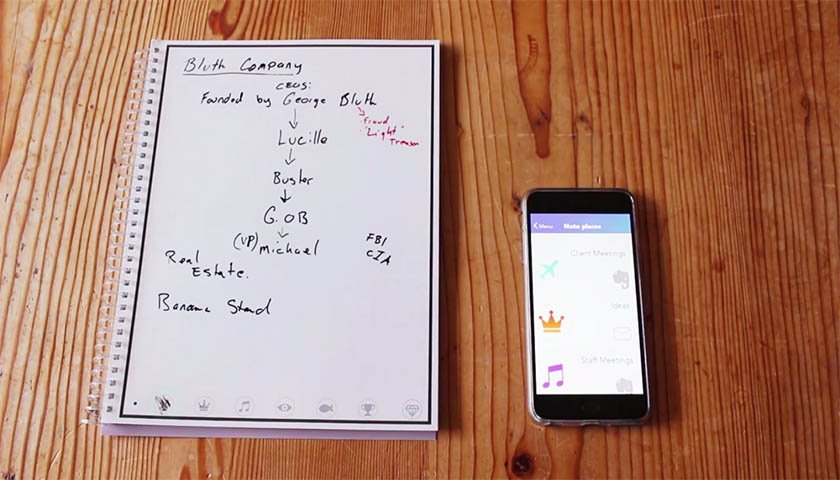 Bluth Company
CEOS:
Founded by George Bluth
Fraud
"Light"
Treason
Lucille
Buster
G.OB
(VP) Michael
FBI
CIA
Real
Estate.
Banana Stand
Menu
Note places
Client Meetings
Ideas
Staff Meetings